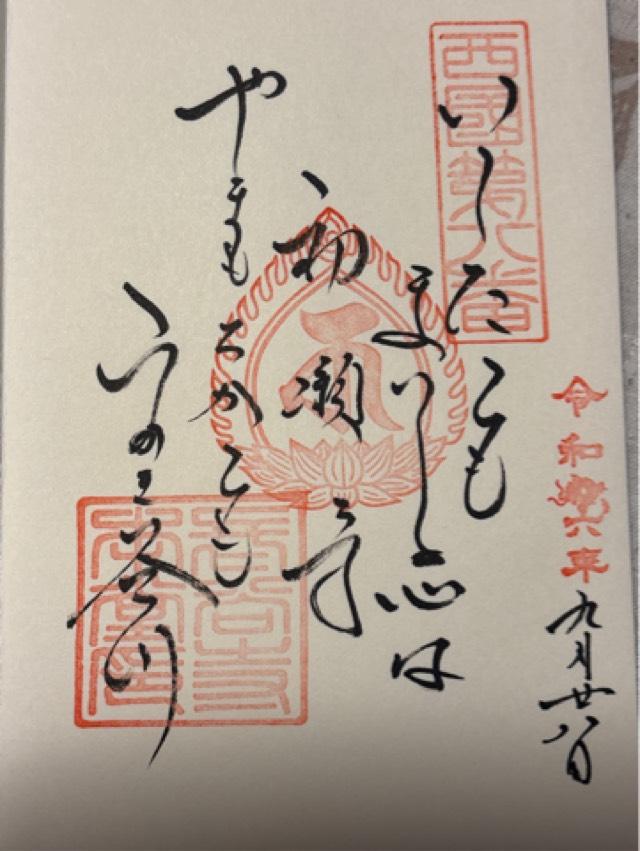 西國第八番
令和六年九月廿八日
いくたひも
まいる心は
初瀬寺
やまもちかひも
ふかき谷川
長谷寺